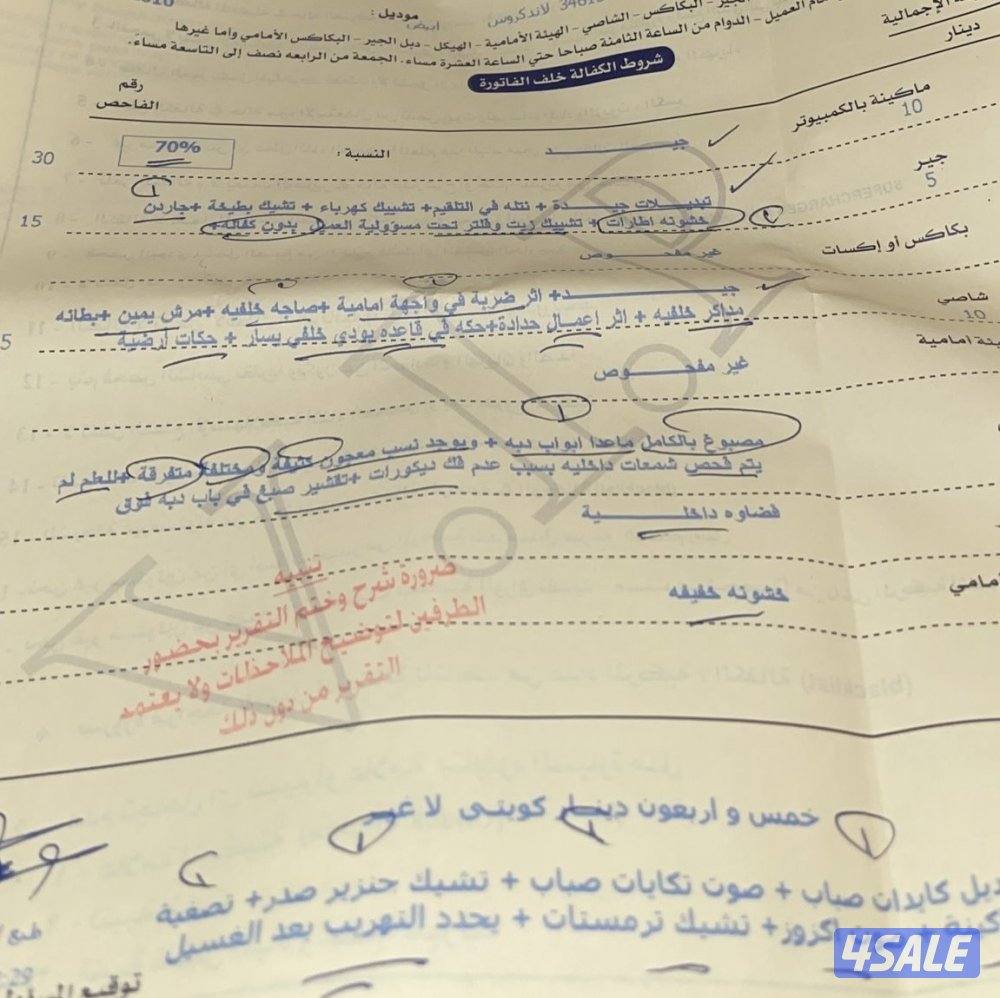 موديل :
34613 لاندكروس
ابيض
الإجمالية
دينار
الجير - البكاكس - الشاصي - الهيئة الأمامية - الهيكل - دبل الجير - البكاكس الأمامي وأما غيرها
العميل - الدوام من الساعة الثامنة صباحا حتي الساعة العشرة مساء . الجمعة من الرابعه نصف إلى التاسعة مساء .
شروط الكفالة خلف الفاتورة
رقم
الفاحص
ماكينة بالكمبيوتر
10
جيـــــــد
النسبة : 70%
30
جير
5
تبديـــلات جيـــــدة + نتله في التلقيم+ تشييك كهرباء + تشيك بطيخة +جاردن
خشونه اطارات + تشييك زيت وفلتر تحت مسؤولية العميل بدون كفاله+
15
بكاكس أو إكسات
غير مفحـــــوص
شاصي
10
جيـــــــد+ اثر ضربة في واجهة امامية +صاجه خلفيه +مرش يمين +بطانه
مداكر خلفيه + اثر اعمـــال حدادة+حكه في قاعده بودي خلفي يسار + جكات ارضية
5
امامية
غير مفحـــــوص
مصبوغ بالكامل ماعدا ابواب دبه + ويوجد نسب معجون كثيفة ومختلفة متفرقة +للعلم لم
يتم فحص شمعات داخليه بسبب عدم فك ديكورات +تقشير صبغ في باب دبه فوق
فضاوه داخلـــــية
أمامي
خشونه خفيفه
تنبيه
ضرورة شرح وختم التقرير بحضور
الطرفين لتوضيح الملاحظات ولا يعتمد
التقرير من دون ذلك
(blacklist)
خمس و اربعون دينـــار كويتـى لا غيـــر
كايدات صباب + صوت تكايات صباب + تشيك جنزير صدر+ تصفية
اكزوز+ تشيك ترمستات + يحدد التهريب بعد الغسيل
توقيع
4SALE